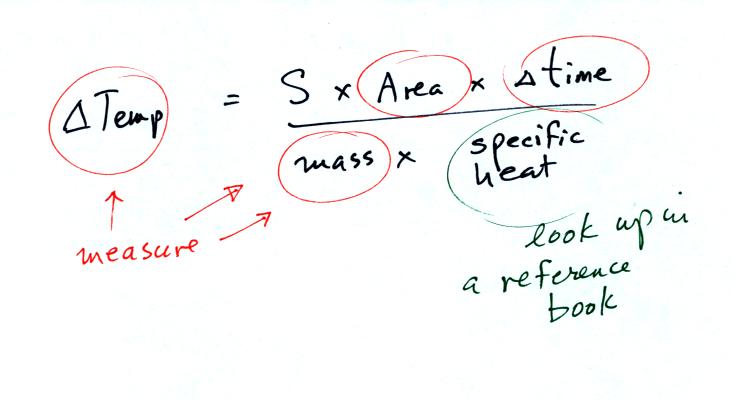 Δ Temp = S x Area x Δ time
mass x specific
heat
measure
look up in
a reference
book